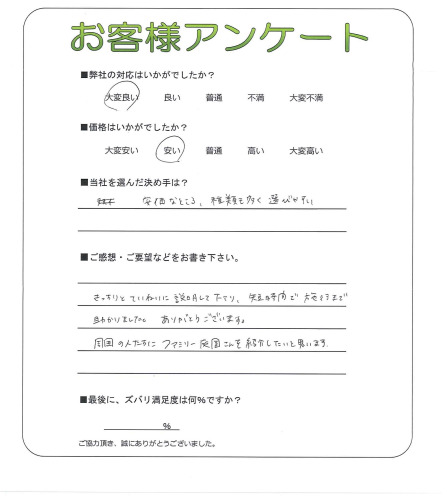 お客様アンケート
■弊社の対応はいかがでしたか？
大変良い 良い 普通 不満 大変不満
■価格はいかがでしたか？
大変安い 安い 普通 高い 大変高い
■当社を選んだ決め手は？
安価なところ、種類も多く選びやすい
■ご感想・ご要望などをお書き下さい。
きっちりとていねいに説明して下さり、短時間で施工まで
助かりました。 ありがとうございます。
周囲の人たちに ファミリー庭園さんを紹介したいと思います
■最後に、ズバリ満足度は何％ですか？
％
ご協力頂き、誠にありがとうございました。